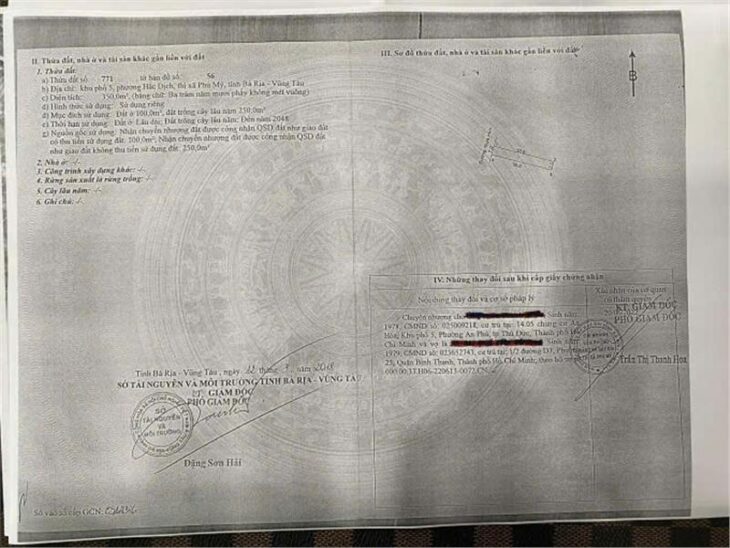 II. Thửa đất, nhà ở và tài sản khác gắn liền với đất
1. Thửa đất:
a) Thửa đất số: 771 tờ bản đồ số: 56
b) Địa chỉ: khu phố 5, phường Hắc Dịch, thị xã Phú Mỹ, tỉnh Bà Rịa - Vũng Tàu
c) Diện tích: 350,0m² (bằng chữ: Ba trăm năm mươi phẩy không mét vuông)
d) Hình thức sử dụng: Sử dụng riêng
đ) Mục đích sử dụng: Đất ở 100,0m², đất trồng cây lâu năm 250,0m²
e) Thời hạn sử dụng: Đất ở Lâu dài; Đất trồng cây lâu năm: Đến năm 2048
g) Nguồn gốc sử dụng: Nhận chuyển nhượng đất được công nhận QSD đất như giao đất
có thu tiền sử dụng đất 100,0m²; Nhận chuyển nhượng đất được công nhận QSD đất
như giao đất không thu tiền sử dụng đất 250,0m²
2. Nhà ở: -/-
3. Công trình xây dựng khác: -/-
4. Rừng sản xuất là rừng trồng: -/-
5. Cây lâu năm: -/-
6. Ghi chú: -/-
Tỉnh Bà Rịa - Vũng Tàu, ngày 22 tháng 2018
SỞ TÀI NGUYÊN VÀ MÔI TRƯỜNG TỈNH BÀ RỊA - VŨNG TÀU
KT. GIÁM ĐỐC
PHÓ GIÁM ĐỐC
SỞ
TÀI NGUYÊN
VÀ
MÔI TRƯỜNG
Đặng Sơn Hải
Số vào sổ cấp GCN:
III. Sơ đồ thửa đất, nhà ở và tài sản khác gắn liền với đất
B
IV. Những thay đổi sau khi cấp giấy chứng nhận
Nội dung thay đổi và cơ sở pháp lý
Xác nhận của cơ quan
có thẩm quyền
Chuyển nhượng cho Sinh năm:
1978, CMND số: 025009218, cư trú tại: 14.05 chung cư
Hòa, Khu phố 5, Phường An Phú, tp Thủ Đức, Thành phố Hồ
Chí Minh và vợ là Sinh năm:
1979, CMND số: 023652743, cư trú tại: 1/2 đường D3, Phường
25, Quận Bình Thạnh, Thành phố Hồ Chí Minh, theo hồ sơ
000.00.31.H06-220613-0072.CN
KT. GIÁM ĐỐC
PHÓ GIÁM ĐỐC
Trần Thị Thanh Hoa